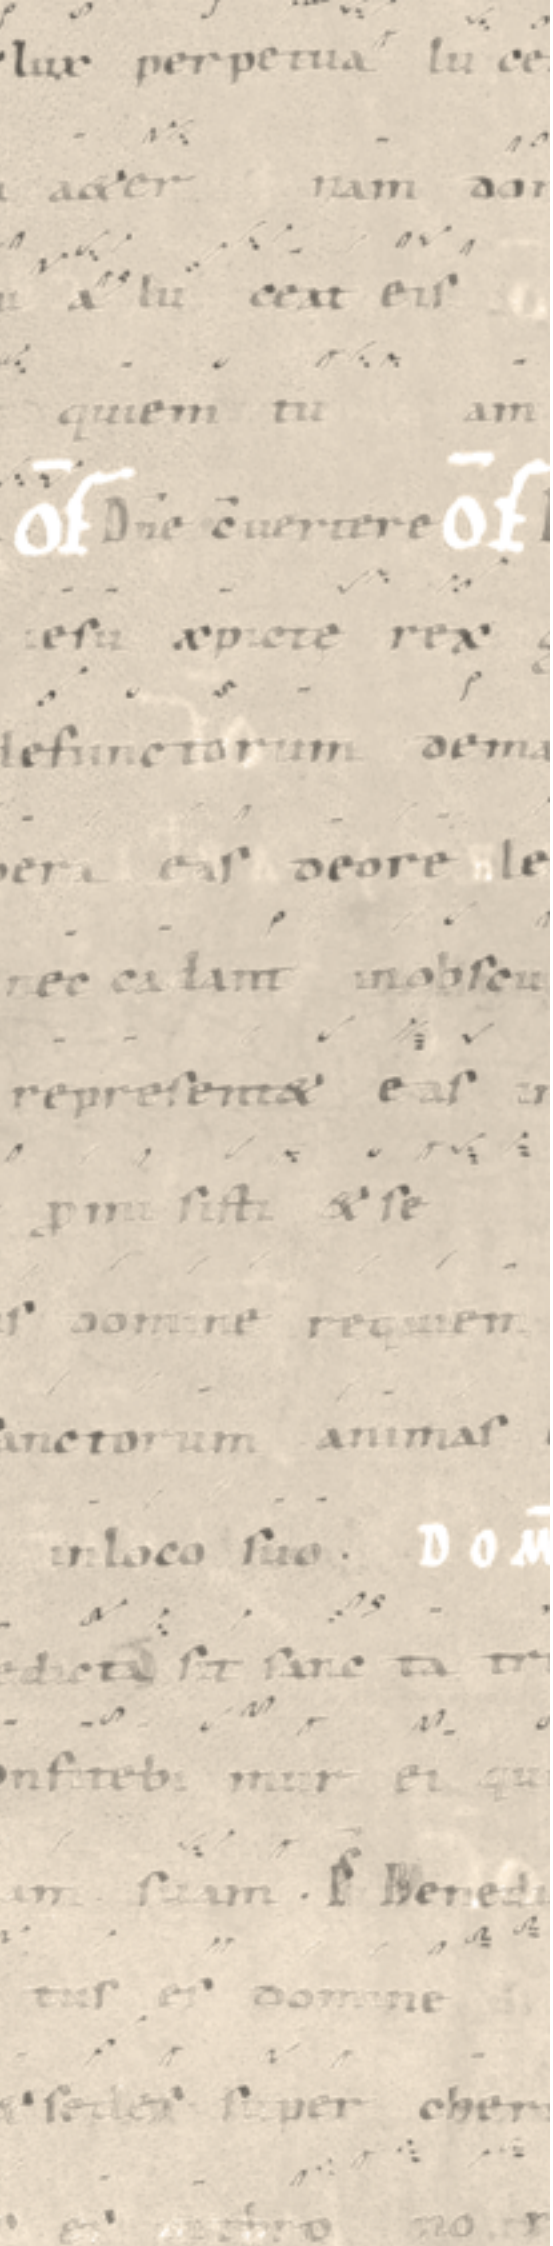 lux perpetua lu ce
aeter nam dom
& lu ceat eis
quiem tu am
OF Dne cuertere OF
iesu xpicte rex g
defunctorum dema
bera eas deore le
nec cadant inobscu
representet eas in
pmi sisti & se
domine requiem
sanctorum animas
inloco suo. DOM
edicta sit sanc ta tri
onfitebi mur ei qui
am suam. Ps Benedi
tus es domine
& sedes super cher
es